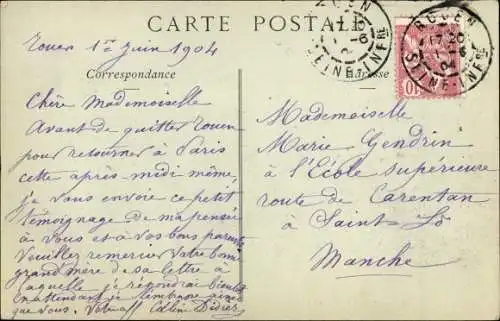 CARTE POSTALE
Correspondance
Adresse
ROUEN
SEINE INFRE
ROUEN
17 20
SEINE INFRE
10
Rouen 1er Juin 1904
Chère Mademoiselle
Avant de quitter Rouen
pour retourner à Paris
cette après-midi même,
je vous envoie ce petit
témoignage de ma pensée
à vous et à vos bons parents
Veuillez remercier votre bonne
grand mère de sa lettre à
laquelle je répondrai bientôt
en attendant je l'embrasse ainsi
que vous. Votre aff Céline Didier
Mademoiselle
Marie Gendrin
à l'École supérieure
route de Carentan
à Saint-Lô
Manche